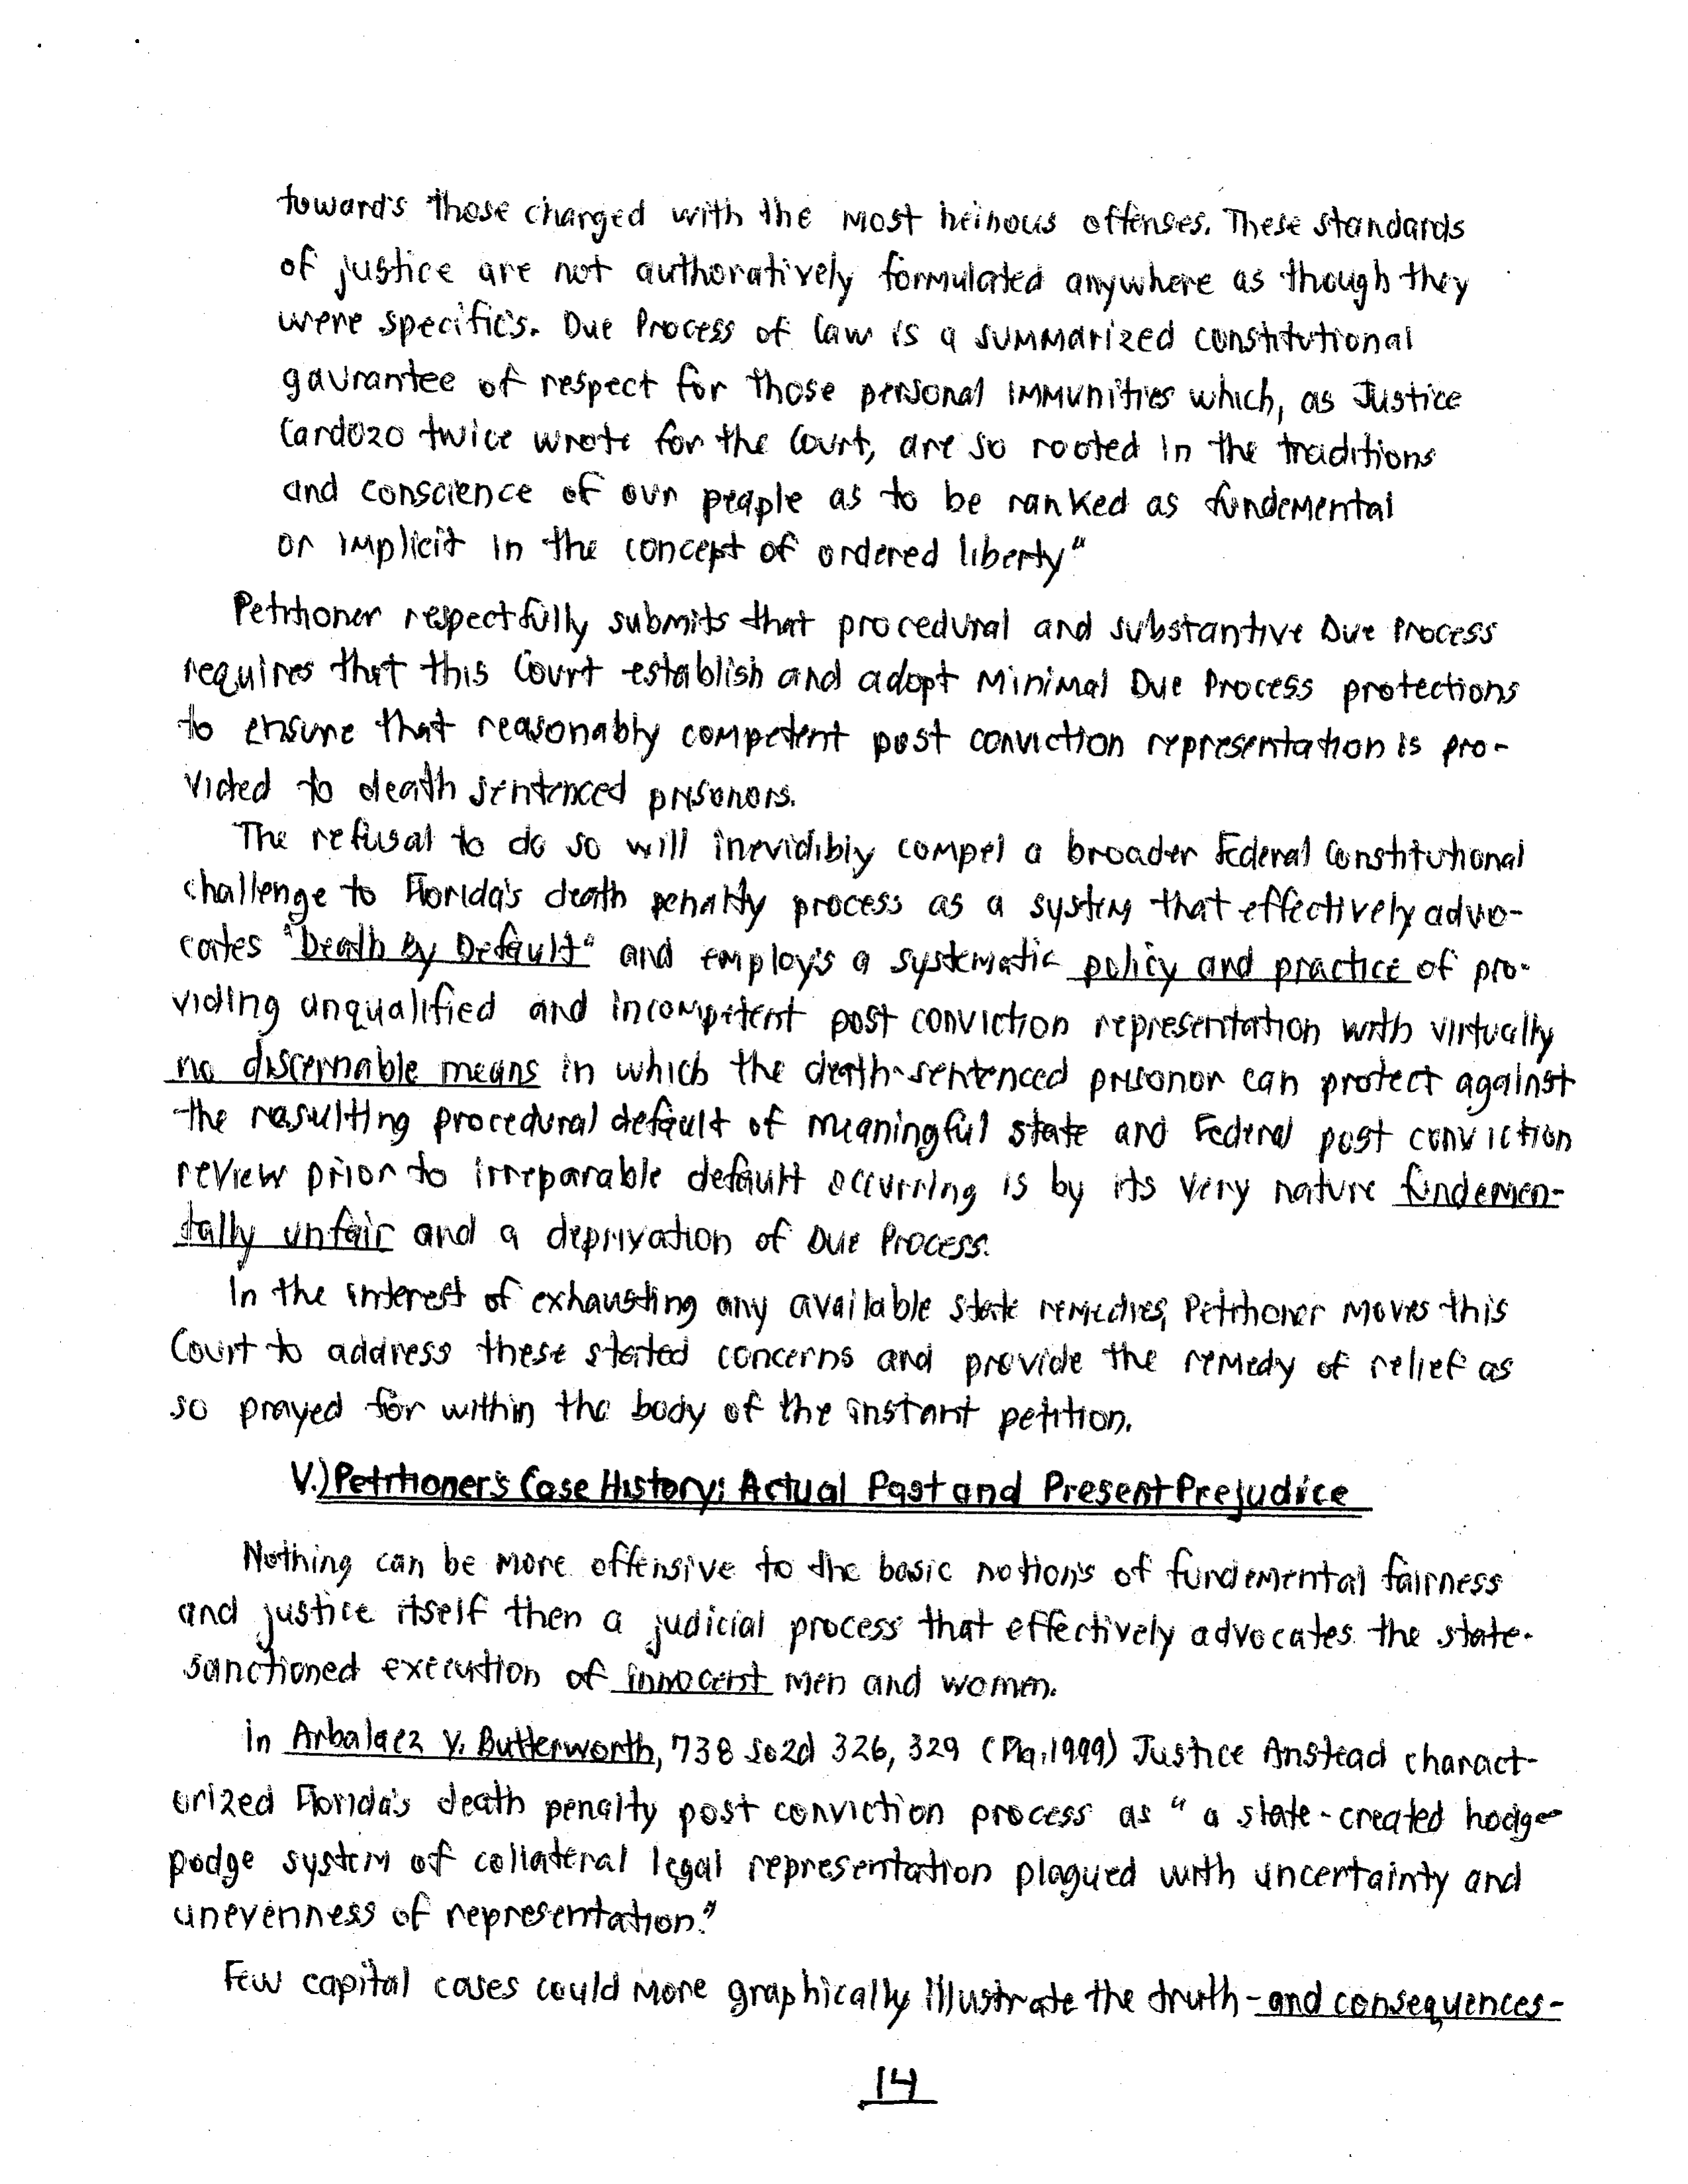 towards those charged with the most heinous offenses. These standards
of justice are not authoratively formulated anywhere as though they
were specifics. Due Process of law is a summarized constitutional
gaurantee of respect for those personal immunities which, as Justice
Cardozo twice wrote for the Court, are so rooted in the traditions
and conscience of our people as to be ranked as fundemental
or implicit in the concept of ordered liberty"
Petitioner respectfully submits that procedural and substantive Due Process
requires that this Court establish and adopt minimal Due Process protections
to ensure that reasonably competent post conviction representation is pro-
vided to death sentenced prisonors.
The refusal to do so will inevidibly compel a broader Federal Constitutional
challenge to Florida's death penalty process as a system that effectively advo-
cates "Death by Default" and employ's a systematic policy and practice of pro-
viding unqualified and incompetent post conviction representation with virtually
no discernable means in which the death-sentenced prisonor can protect against
the resulting procedural default of meaningful state and Federal post conviction
review prior to irreparable default occurring is by its very nature fundemen-
tally unfair and a deprivation of Due Process.
In the interest of exhausting any available state remedies, Petitioner moves this
Court to address these stated concerns and provide the remedy of relief as
so prayed for within the body of the instant petition.
V.) Petitioner's Case History: Actual Past and Present Prejudice
Nothing can be more offensive to the basic notions of fundemental fairness
and justice itself then a judicial process that effectively advocates the state-
sanctioned execution of innocent men and women.
in Arbalaez v. Butterworth, 738 So2d 326, 329 (Fla, 1999) Justice Anstead charact-
orized Florida's death penalty post conviction process as "a state-created hodge
podge system of collateral legal representation plagued with uncertainty and
unevenness of representation."
Few capital cases could more graphically illustrate the truth - and consequences -
14